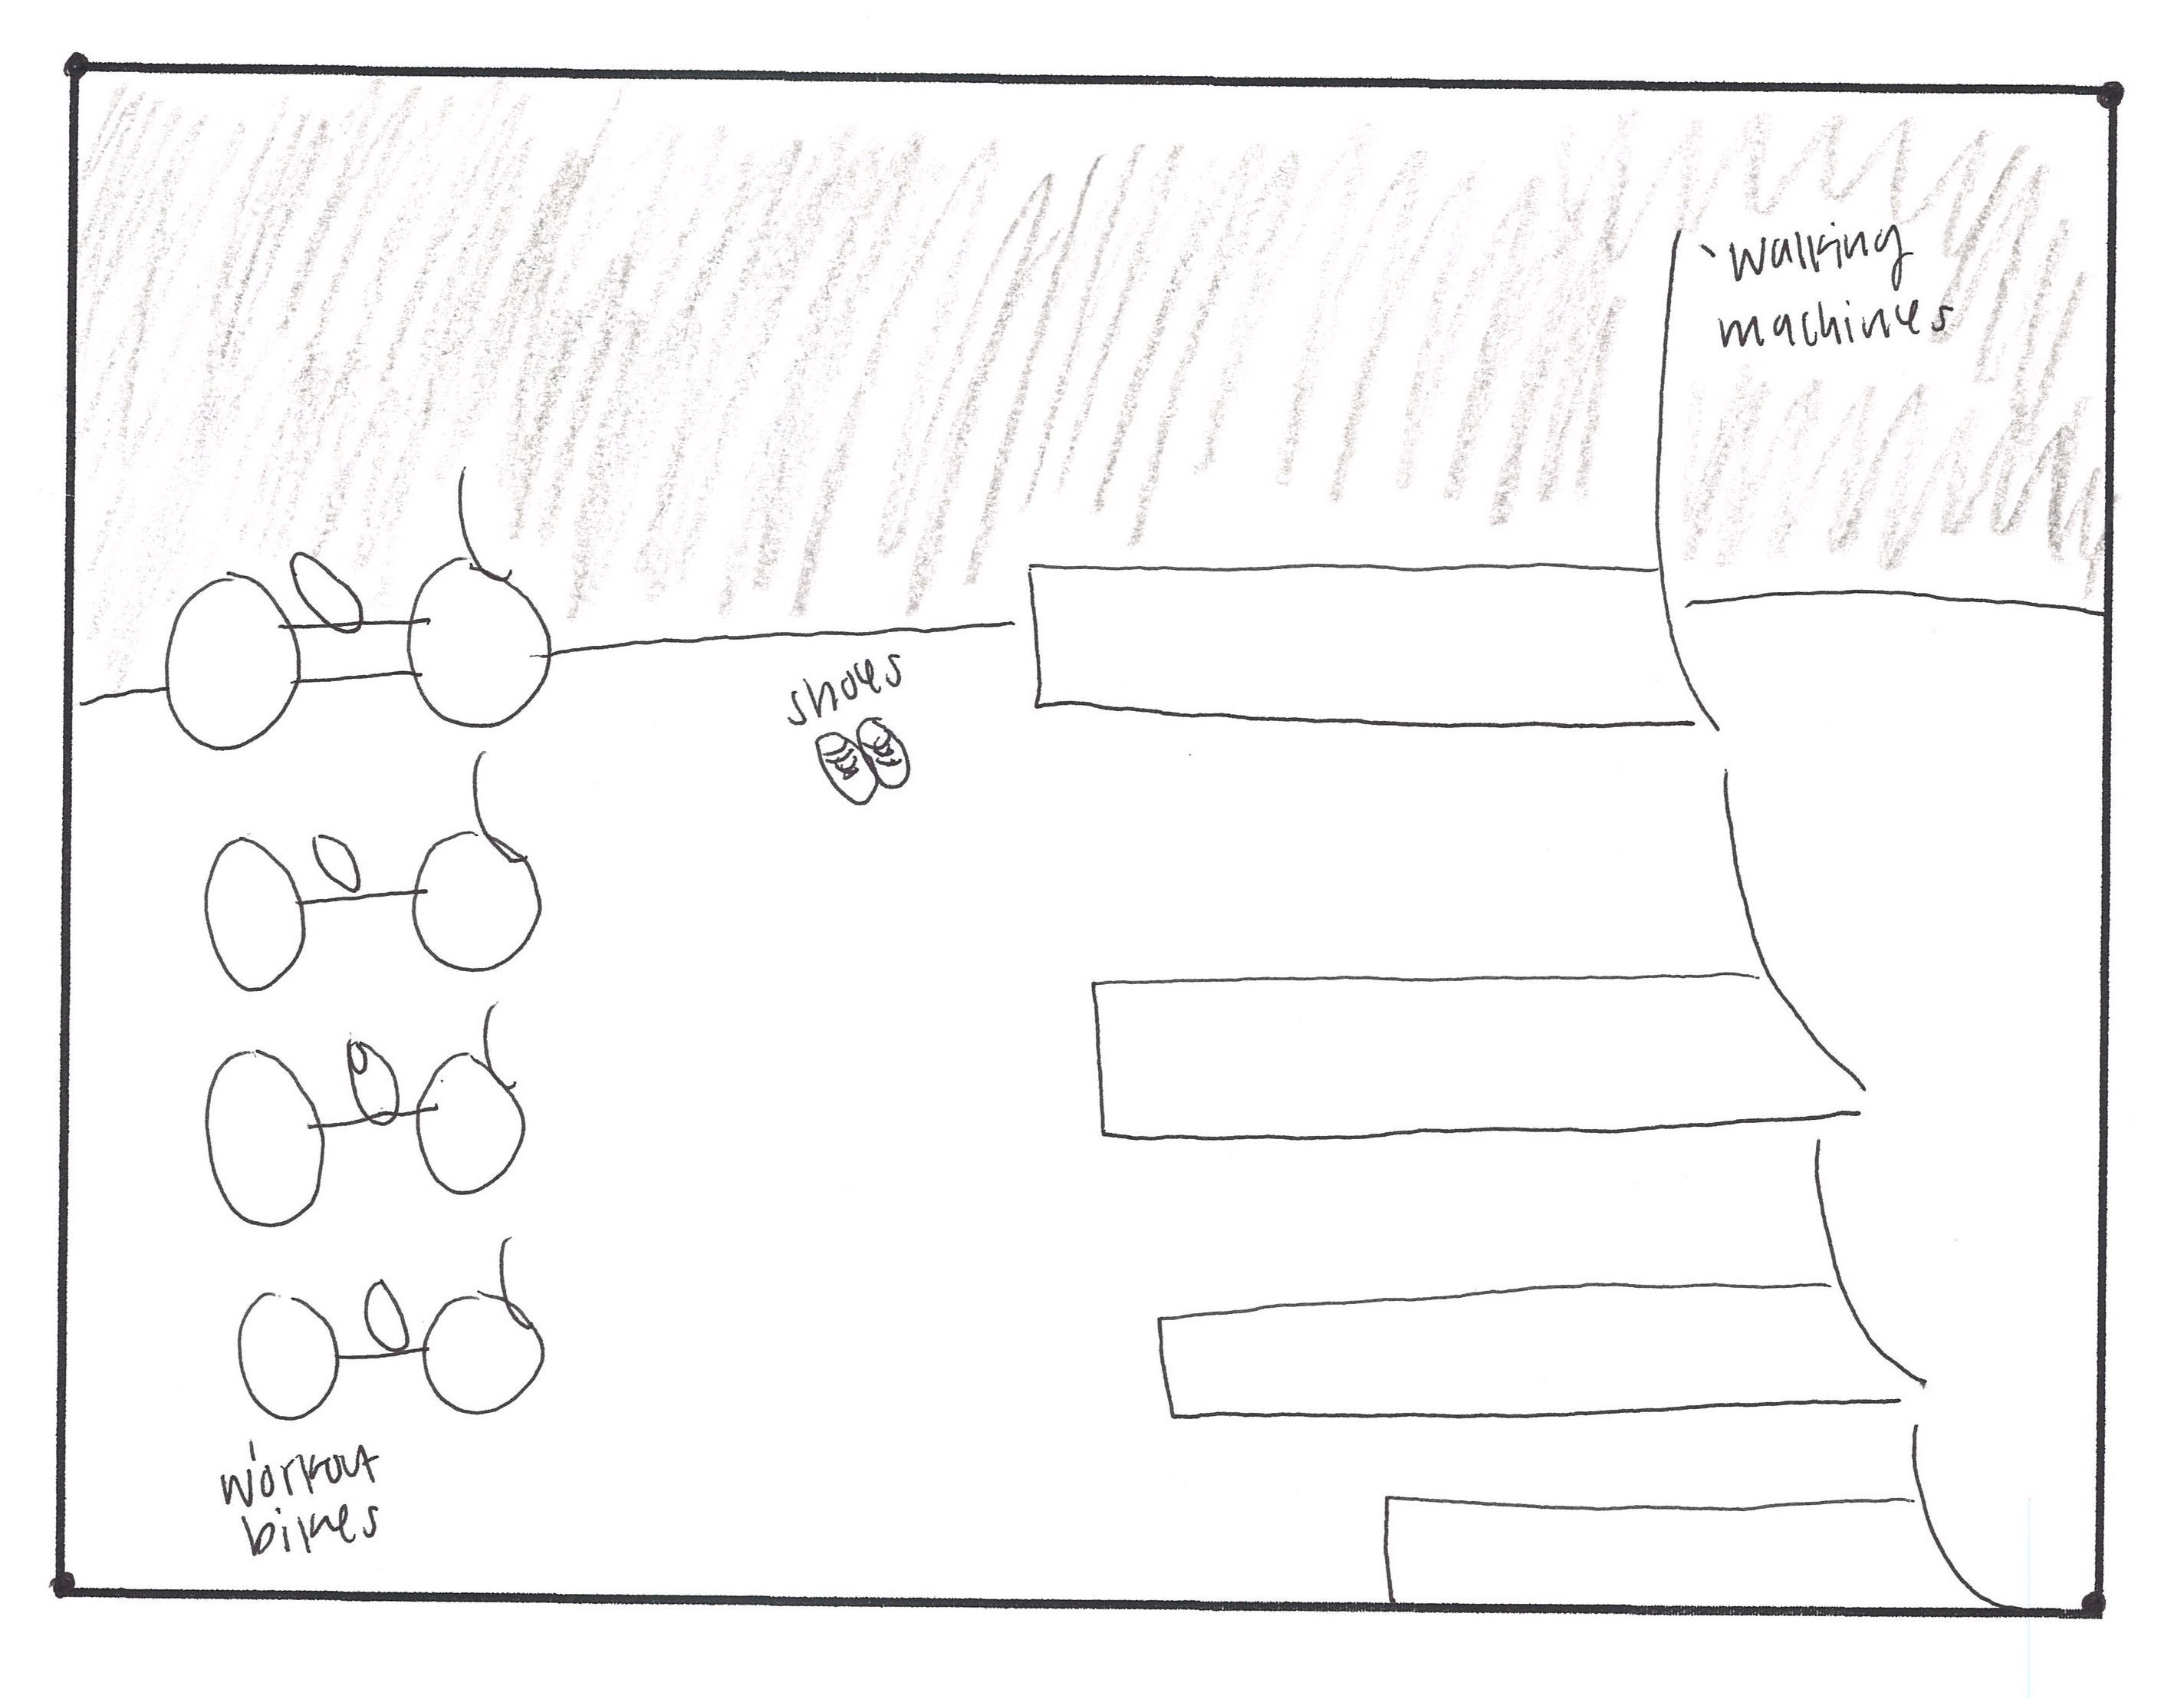 walking
machines
shoes
workout
bikes